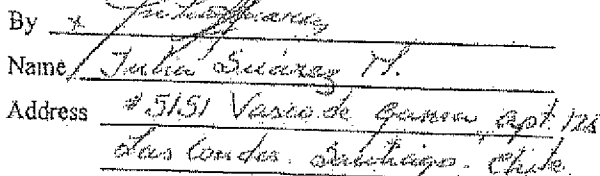 By x
Name Julia Suárez M.
Address #5151 Vasco de Gama, apt. 126
Las Condes. Santiago. Chile